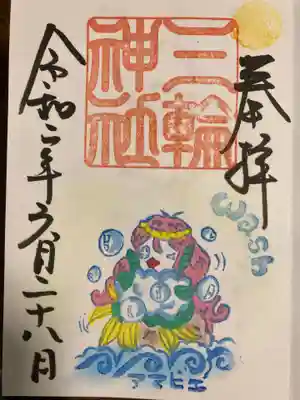 奉拝
三輪
神社
令和二年六月二十八日
Wash
アマビエ